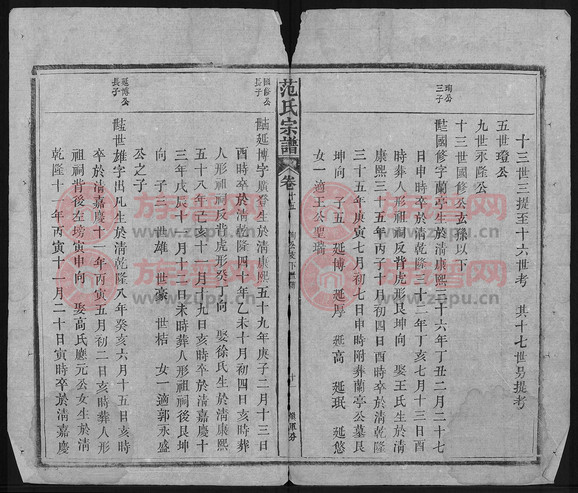 十三世三提至十六世考 其十七世另提考
五世瓊公
九世永隆公
十三世國修公玄孫以下
珣公
三子
國修字蘭亭生於清康熙三十六年丁丑二月二十七
日申時卒於清乾隆三十二年丁亥七月十三日酉
時葬人形祖祠反背虎形艮坤向 娶王氏生於清
康熙三十五年丙子十月初四日酉時卒於清乾隆
三十五年庚寅七月初七日申時附葬蘭亭公墓艮
坤向 子五 延博 延厚 延高 延珉 延悠
女一適王公聖瑞
范氏宗譜
卷
國修公
長子
延博字廣春生於清康熙五十九年庚子二月十三日
酉時卒於清乾隆四十年乙未十月初四日亥時葬
人形祖祠反背虎形癸丁向 娶徐氏生於清康熙
五十八年己亥十一月十九日亥時卒於清嘉慶十
三年戊辰十一月十二日未時葬人形祖祠後艮坤
向 子三 世雄 世家 世桔 女一適郭永盛
公之子
延博公
長子
世雄字出凡生於清乾隆八年癸亥六月十五日亥時
卒於清嘉慶十一年丙寅五月初二日亥時葬人形
祖祠背後左塝寅申向 娶高氏慶元公女生於清
乾隆十一年丙寅十一月二十日寅時卒於清嘉慶
族譜网
www.zupu.cn